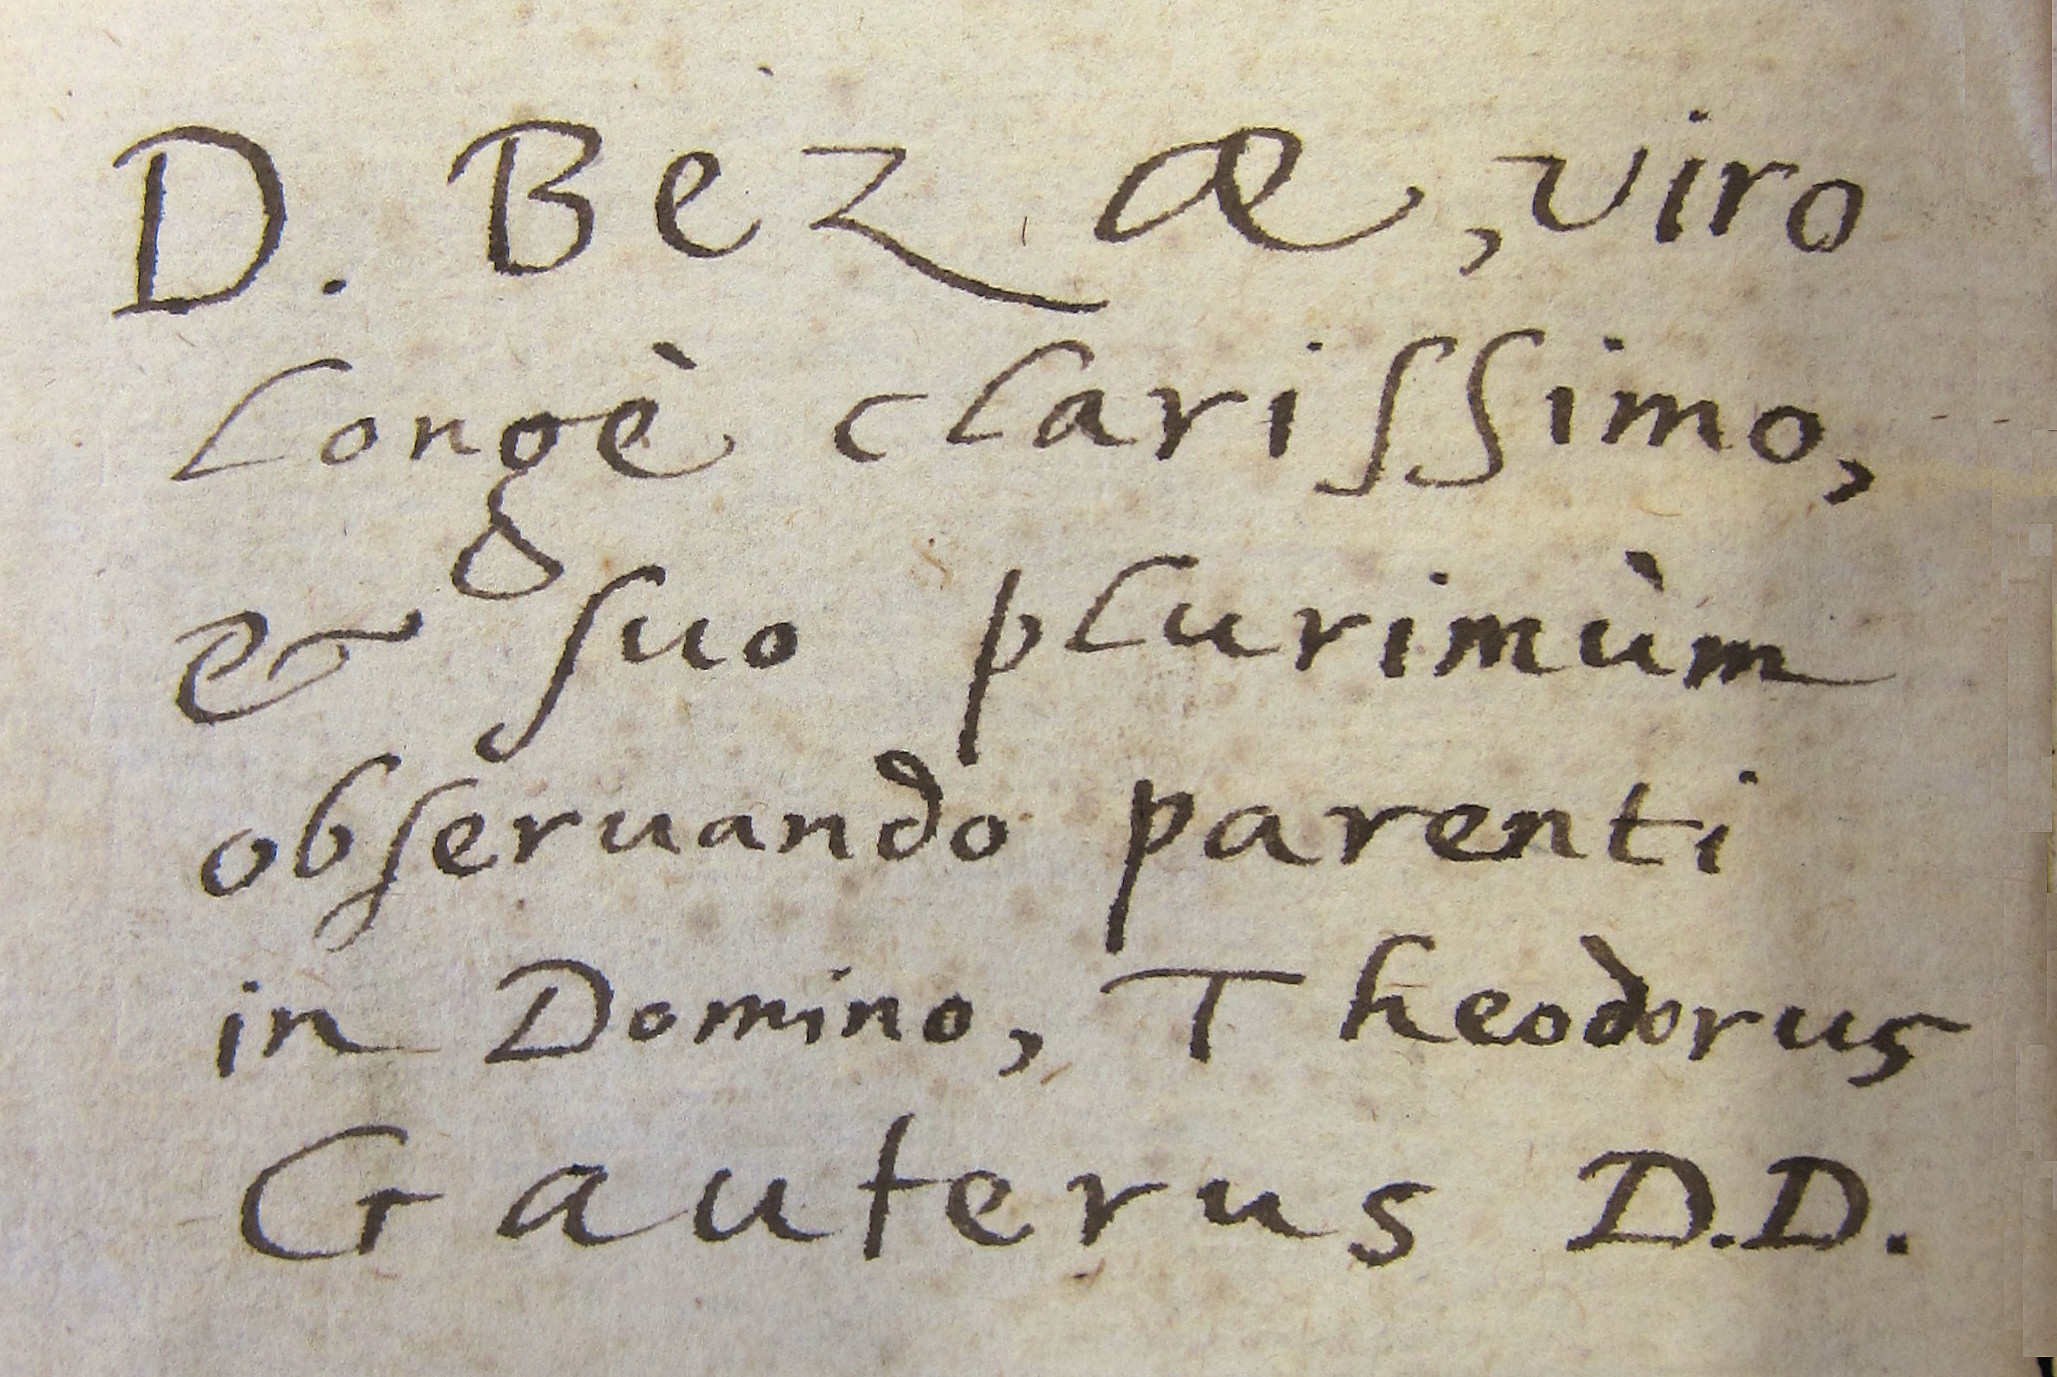 D. Bezæ, viro
longè clariſſimo,
& ſuo plurimùm
obſeruando parenti
in Domino, Theodorus
Gauterus D.D.